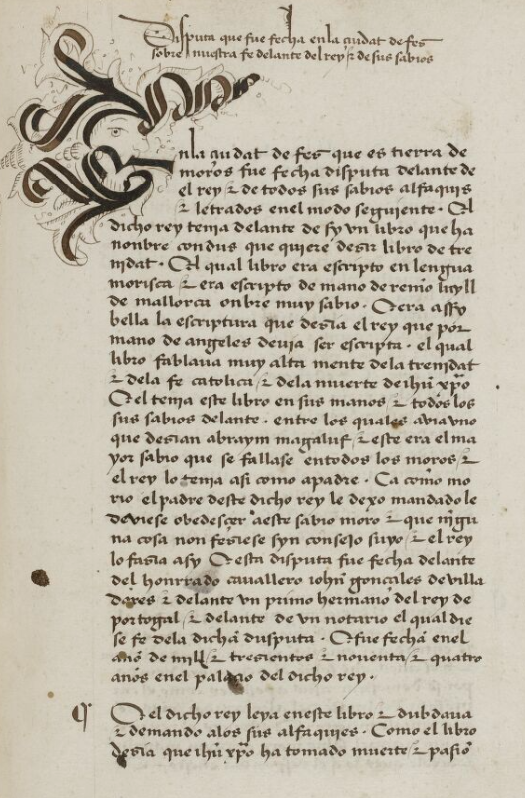 Disputa que fue fecha enla ciudat de fes
sobre nuestra fe delante del rey & de sus sabios
Enla ciudat de fes que es tierra de
moros fue fecha disputa delante de
el rey & de todos sus sabios alfaquis
& letrados enel modo seguiente. El
dicho rey tenia delante de sy vn libro que ha
nonbre condus que quiere desir libro de tre
nidat. El qual libro era escripto en lengua
morisca & era escripto de mano de remo lull
de mallorca onbre muy sabio. E era assy
bella la escriptura que desia el rey que por
mano de angeles deuia ser escripta. el qual
libro fablaua muy alta mente dela trenidat
& dela fe catolica & dela muerte de ihu xpo
E el tenia este libro en sus manos & todos los
sus sabios delante. entre los quales auia vno
que desian abraym magaluf & este era el ma
yor sabio que se fallase entodos los moros &
el rey lo tenia asi como apadre. Ca como mo
rio el padre deste dicho rey le dexo mandado le
deuiese obedescer aeste sabio moro & que nigu
na cosa non fesiese syn consejo suyo & el rey
lo fasia asy E esta disputa fue fecha delante
del honrrado cauallero iohn gonçales de villa
dares & delante vn primo hermano del rey de
portogal & delante de vn notario el qual die
se fe dela dicha dusputa. E fue fecha enel
año de mill & tresientos & nouenta & quatro
años enel palacio del dicho rey.
E el dicho rey leya eneste libro & dubdaua
& demando alos sus alfaquies. Como el libro
desia que ihu xpo ha tomado muerte & pasio